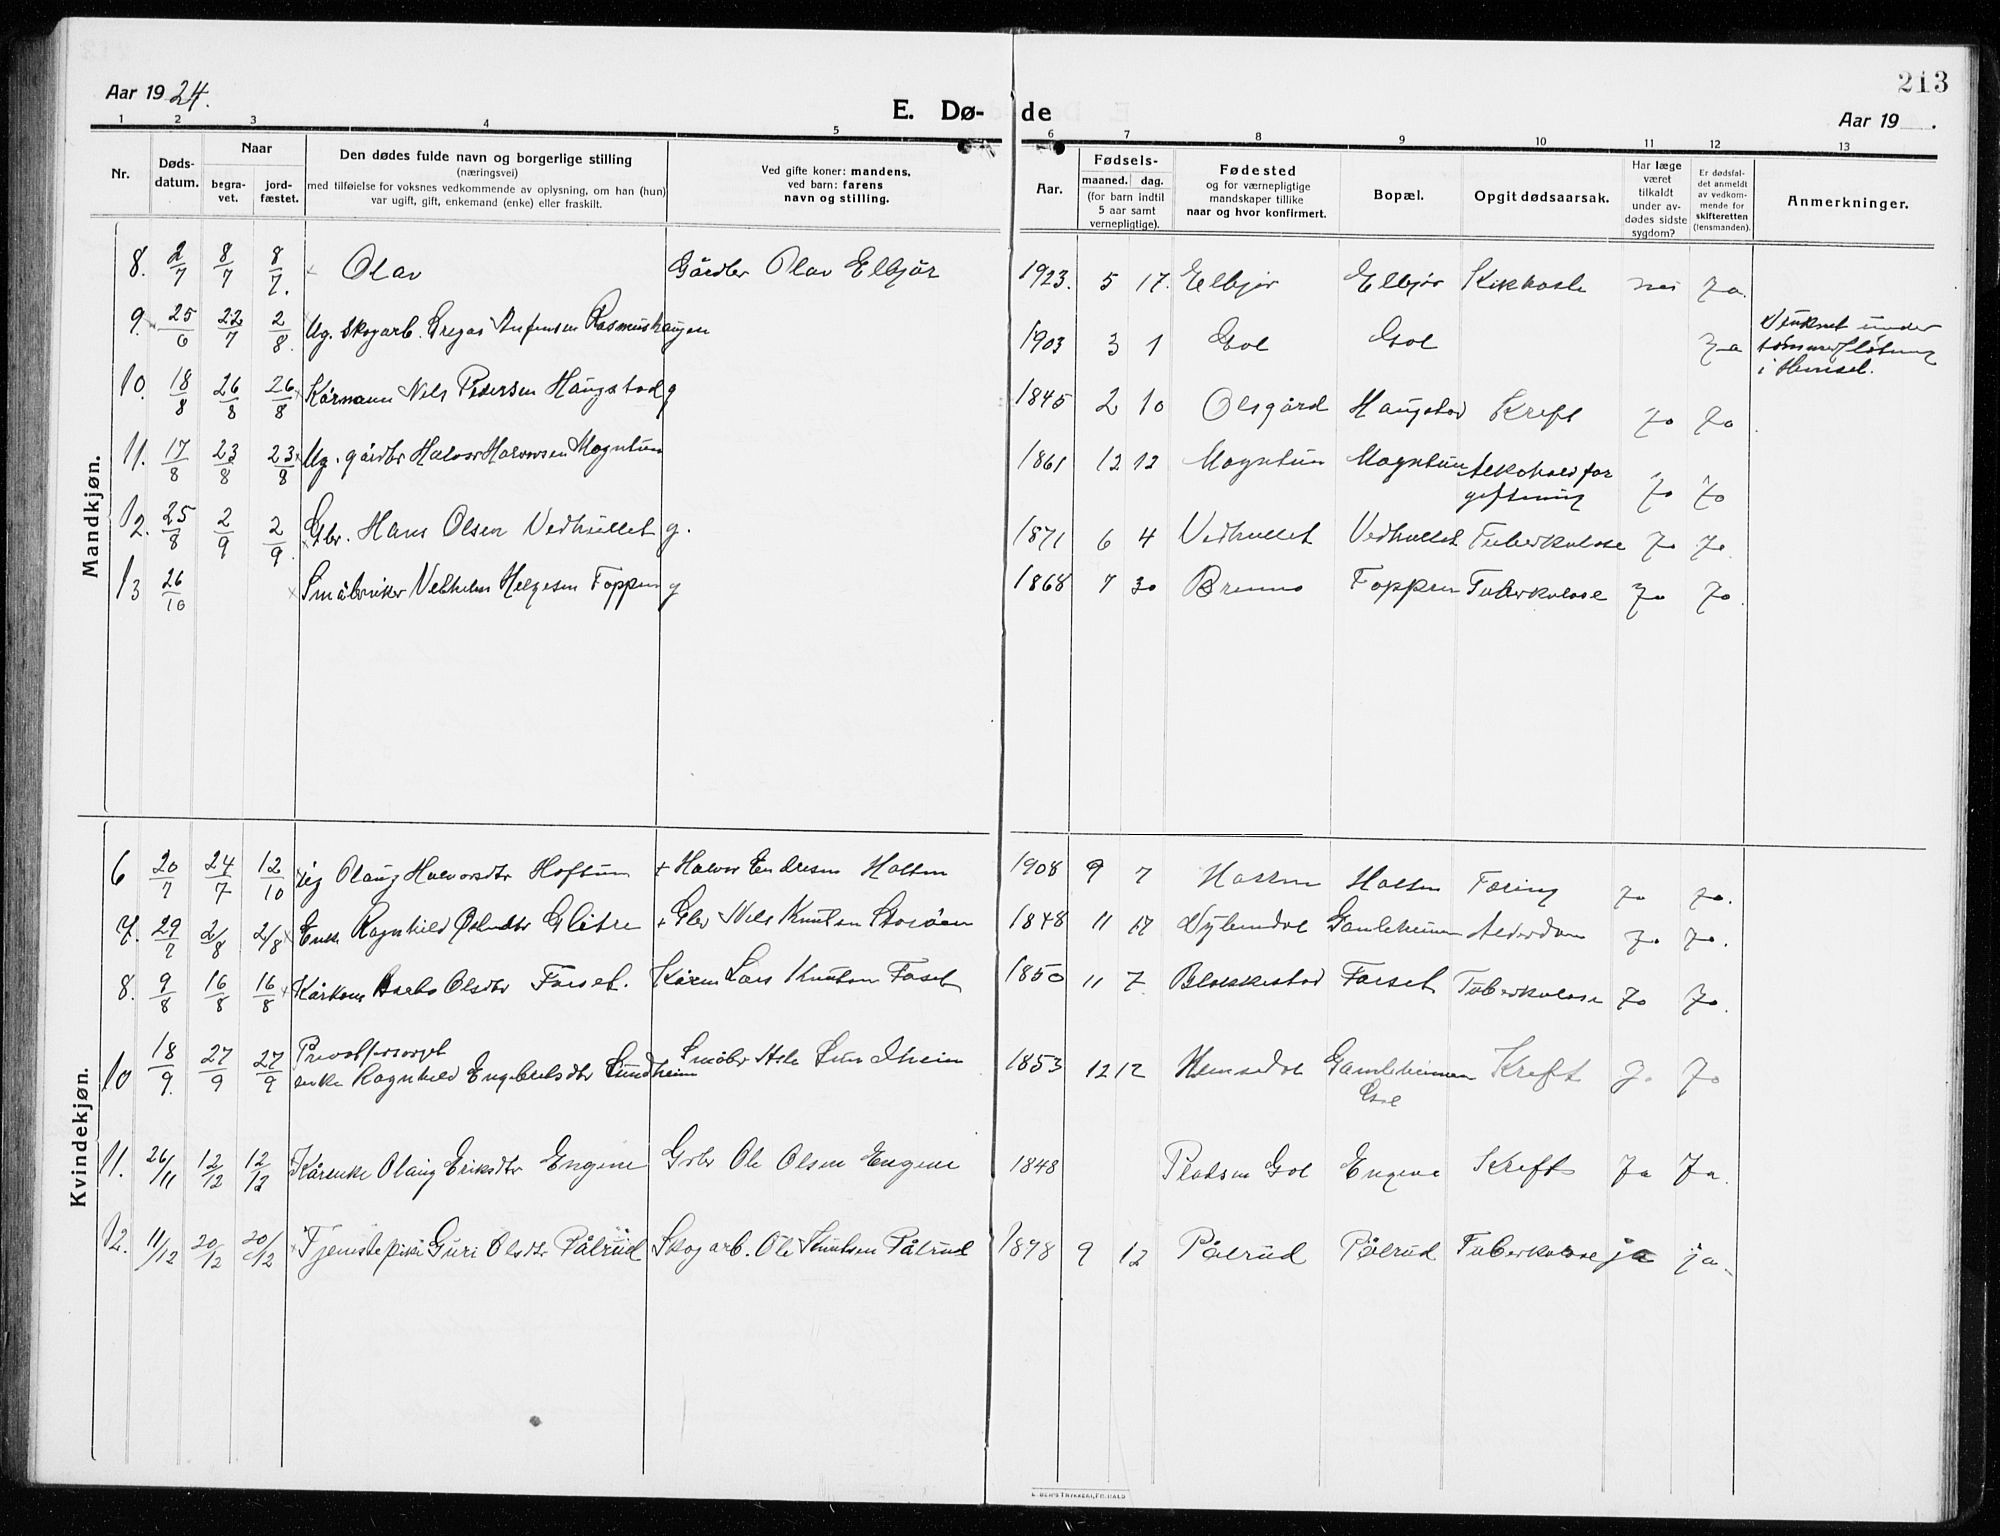 213
Aar 1924.
E. Dø-
de
Aar 19 .
1 2 3 4 5 6 7 8 9 10 11 12 13
Nr.
Døds-
datum.
Naar
begra-
vet.
jord-
fæstet.
Den dødes fulde navn og borgerlige stilling
(næringsvei)
med tilføielse for voksnes vedkommende av oplysning, om han (hun)
var ugift, gift, enkemand (enke) eller fraskilt.
Ved gifte koner: mandens,
ved barn: farens
navn og stilling.
Aar.
Fødsels-
maaned. dag.
(for barn indtil
5 aar samt
vernepligtige).
Fødested
og for værnepligtige
mandskaper tillike
naar og hvor konfirmert.
Bopæl.
Opgit dødsaarsak.
Har læge
været
tilkaldt
under av-
dødes sidste
sygdom?
Er dødsfal-
det anmeldt
av vedkom-
mende for
skifteretten
(lensmanden).
Anmerkninger.
Mandkjøn.
8. 2/7 8/7 8/7. Olav Gårdbr Olav Elbjør 1923. 5 17. Elbjør Elbjør Kikhoste nei Ja.
9. 25/6 22/7 2/8. Ug. Skogarb. Gregas Rasmushaugen 1903 3 1 Gol Gol Ja Druknet under
tømmerfløtning
i Hemsel.
10. 18/8 26/8 26/8 Kårmann Nils Pedersen Haugstad g 1845 2 10 Olsgård Haugstad Kreft Ja Ja
11. 17/8 23/8 23/8 Ug. gårdbr Halvor Halvorsen Magntun 1861 12 12 Magntun Magntun Alkoholfor
giftning Ja Ja
12. 25/8 2/9 2/9. Gbr. Hans Olsen Vedhullet g. 1871 6 4 Vedhullet Vedhullet Tuberkulose Ja Ja.
13 26/10 Småbruker Vilhelm Helgesen Foppen g 1868 7 30 Brenno Foppen Tuberkulose Ja Ja.
Kvindekjøn.
6 20/7 24/7 12/10 Ug Olaug Halvorsdtr Hoftun + Halvor Endresen Halten 1908 9 7 Halten Tæring Ja Ja.
7. 29/7 2/8 2/8 Enke Ragnhild Glitre + Gbr Nils Knutsen Storøen 1848 11 17 Gamleheimen Alderdom Ja Ja.
8. 9/8 16/8 16/8 Kårkone Olsdtr Forset. Kårm Lars Knutsen Forset 1850 11 7. Blakkestad Forset Tuberkulose Ja Ja.
10 18/9. 27/9 27/9 Privatforsørget
enke Ragnhild Engebretsdtr Sundheim Småbr Asle Sundheim 1853 12 12 Hemsedal Gamleheimen
Gol Kreft Ja Ja
11. 26/11 12/12 12/12 Kårenke Olaug Eriksdtr Engene Gbr Ole Olsen Engene 1848 Pladsen Gol Engene Kreft Ja Ja.
12. 11/12 20/12 20/12 Tjenestepike Guri Olsdtr Pålrud Skogarb. Ole Knutsen Pålrud 1898 9 12 Pålrud Pålrud Tuberkulose ja ja.